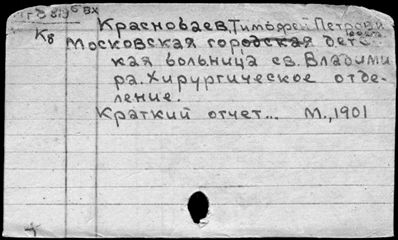 Краснобаев, Тимофей Петрови
К8 Московская городская детс
кая больница св. Владими
ра. Хирургическое отде-
ление.
Краткий отчет... М., 1901